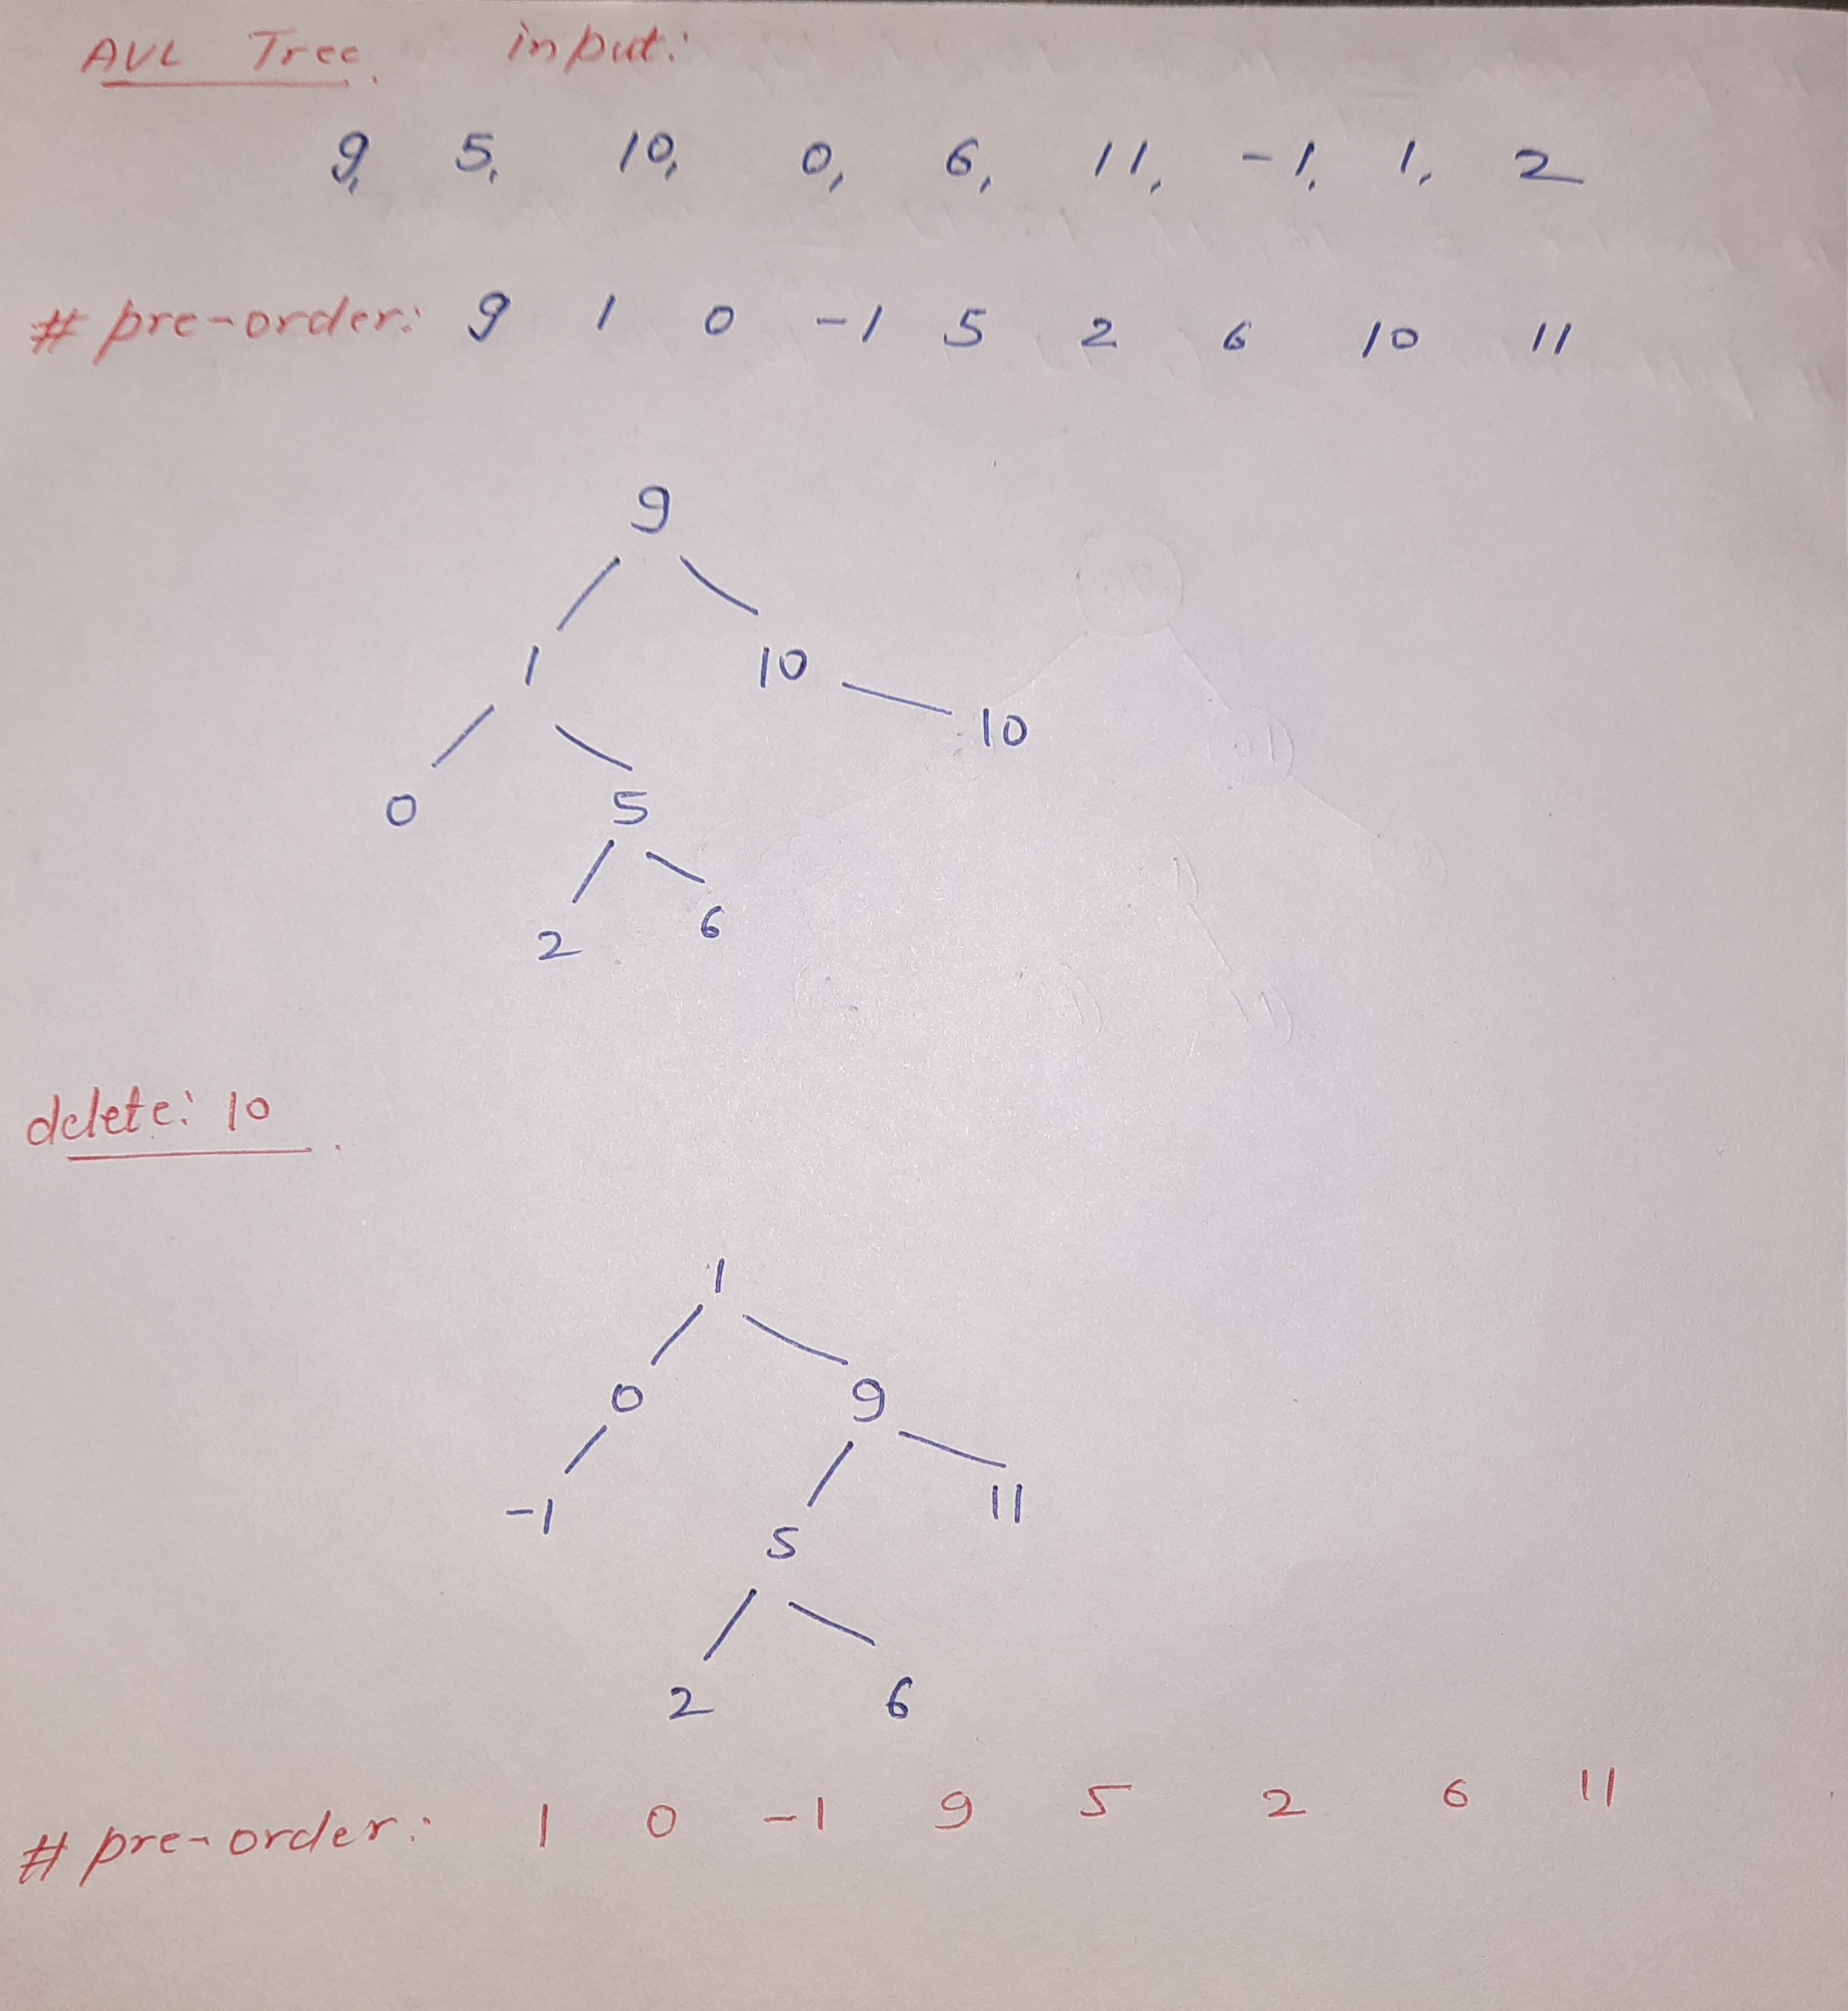 AVL Tree. input:
9, 5, 10, 0, 6, 11, -1, 1, 2
# pre-order: 9 1 0 -1 5 2 6 10 11
9
1 10
10
0 5
2 6
delete: 10
1
0 9
-1 11
5
2 6
# pre-order: 1 0 -1 9 5 2 6 11